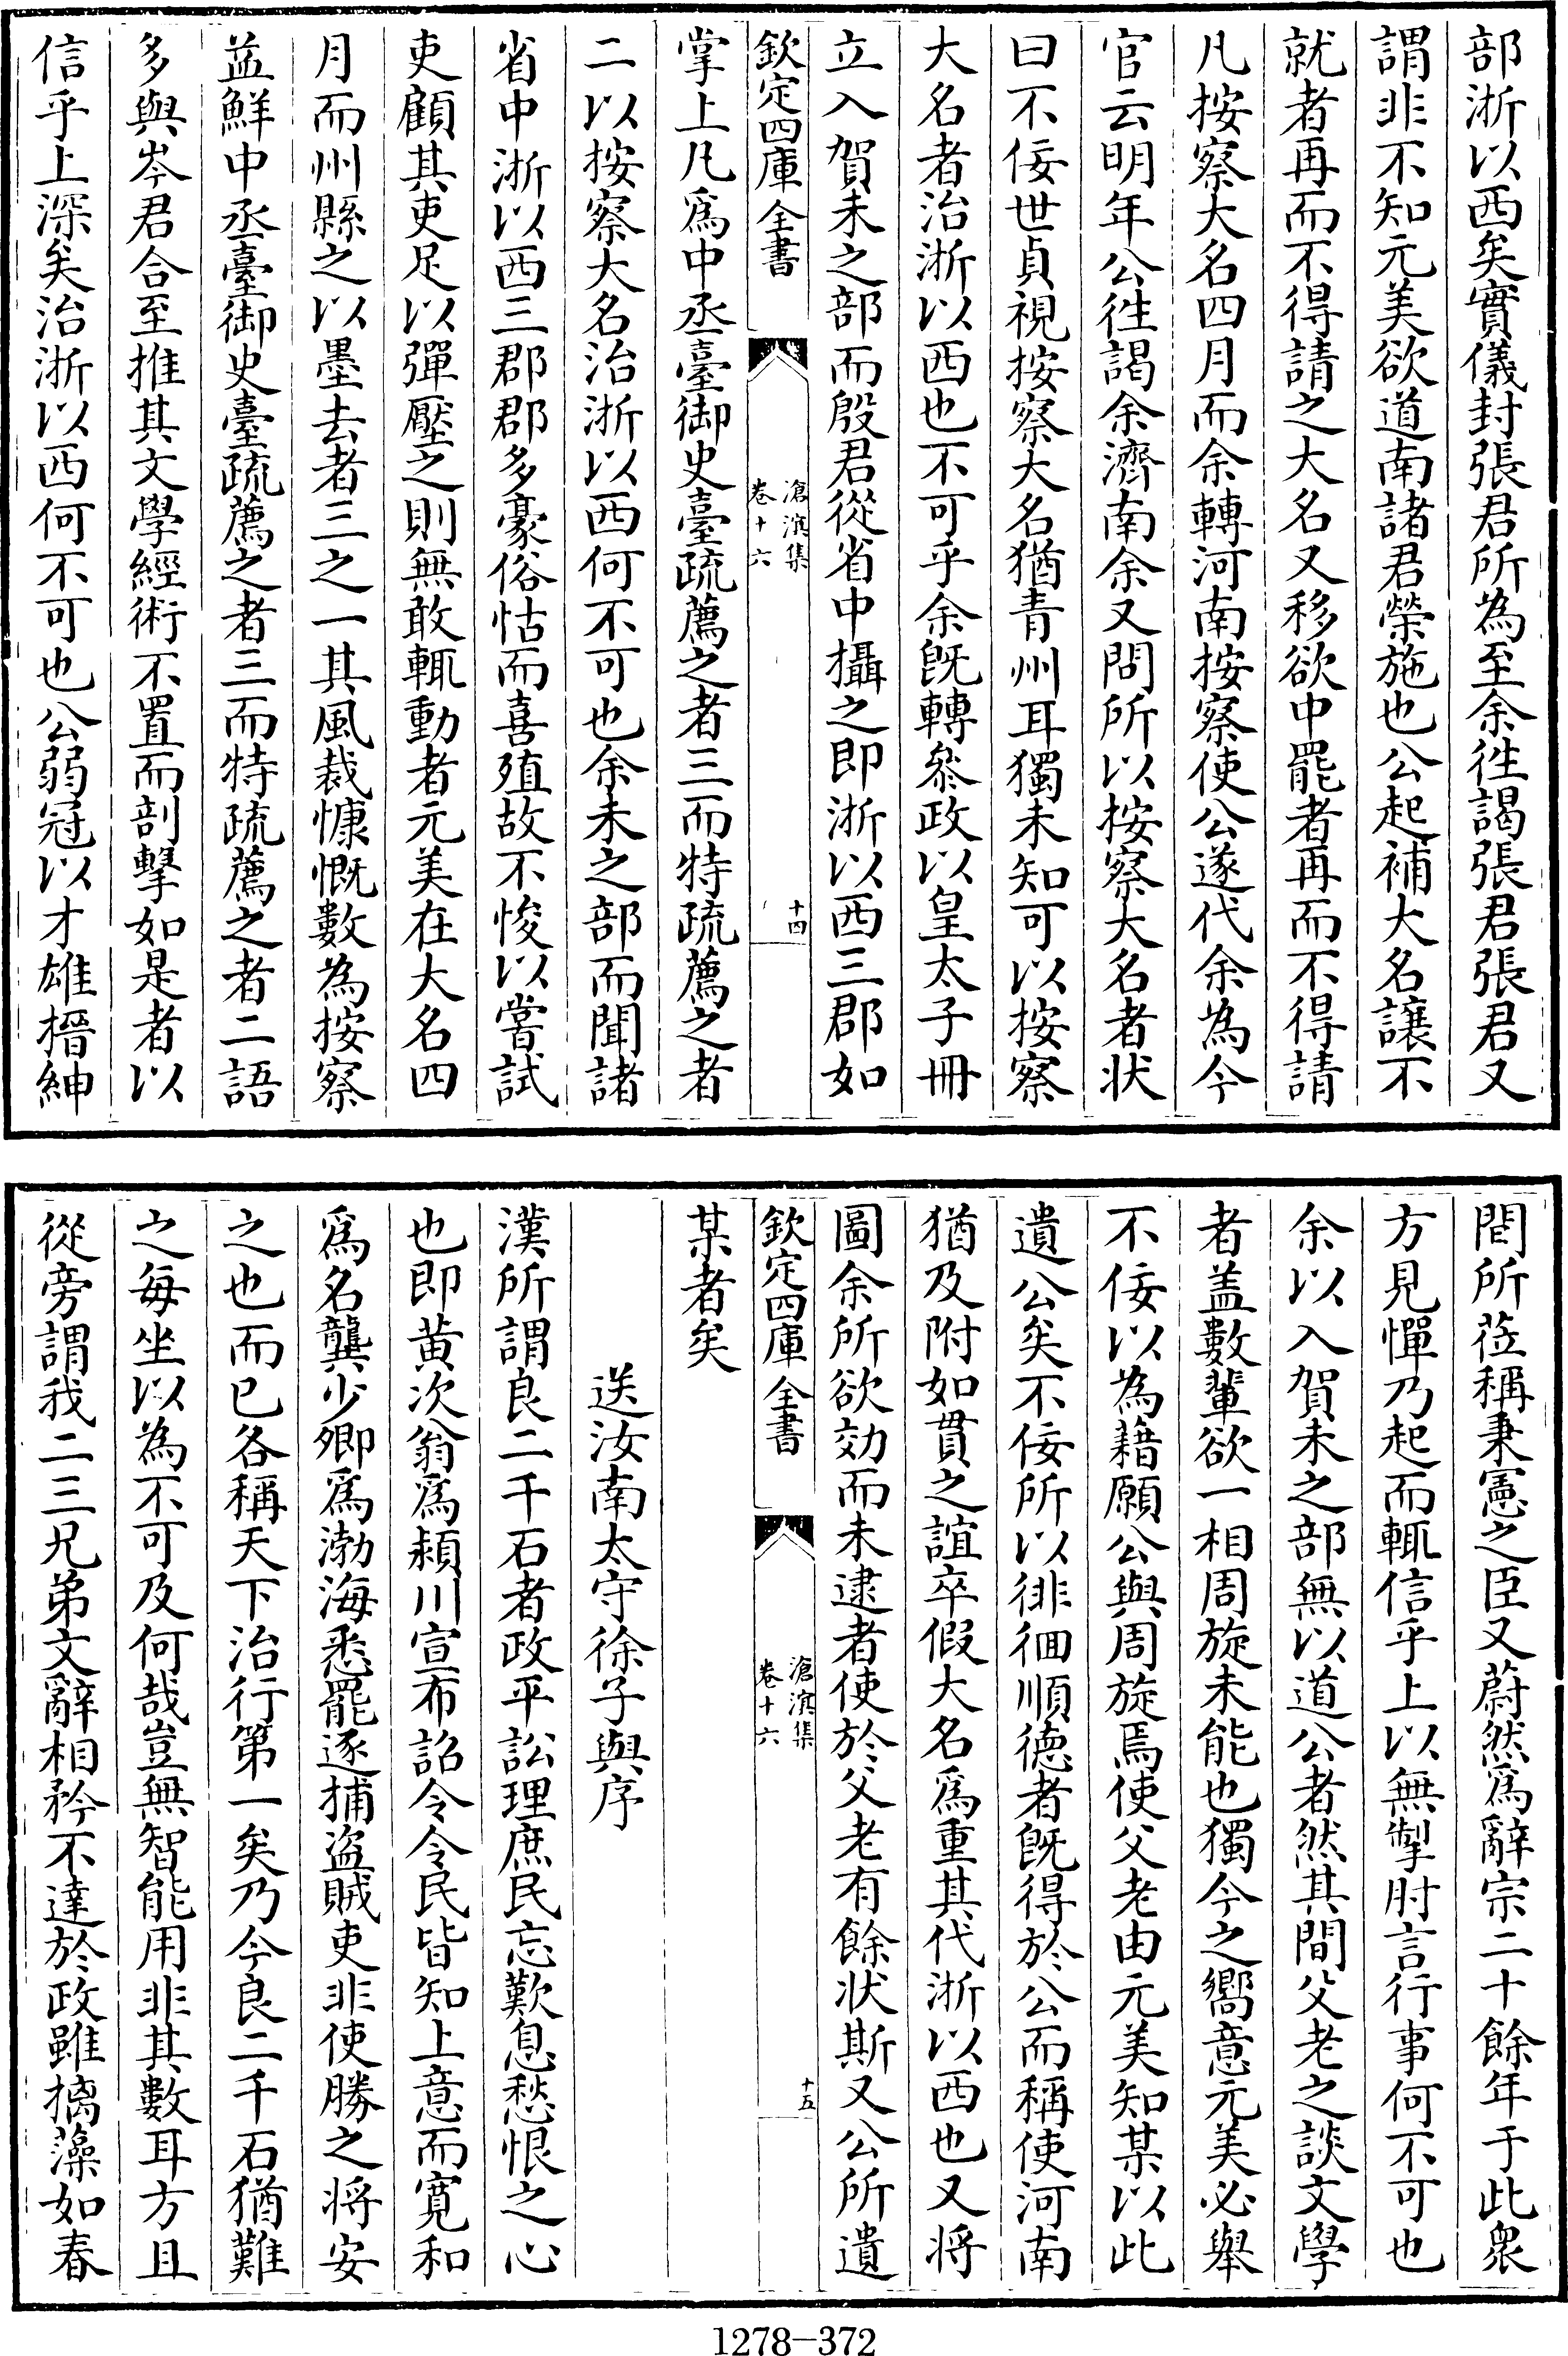 部浙以西矣實儀封張君所為至余徃謁張君張君又
謂非不知元美欲道南諸君榮施也公起補大名讓不
就者再而不得請之大名又移欲中罷者再而不得請
凡按察大名四月而余轉河南按察使公遂代余為今
官云明年公徃謁余濟南余又問所以按察大名者状
曰不佞世貞視按察大名猶青州耳獨未知可以按察
大名者治浙以西也不可乎余既轉叅政以皇太子冊
立入賀未之部而殷君從省中攝之即浙以西三郡如
欽定四庫全書
滄溟集
卷十六
十四
掌上凡爲中丞臺御史臺疏薦之者三而特疏薦之者
二以按察大名治浙以西何不可也余未之部而聞諸
省中浙以西三郡郡多豪俗怙而喜殖故不悛以嘗試
吏顧其吏足以彈壓之則無敢輒動者元美在大名四
月而州縣之以墨去者三之一其風裁慷慨數為按察
益鮮中丞臺御史臺疏薦之者三而特疏薦之者二語
多與岑君合至推其文學經術不置而剖擊如是者以
信乎上深矣治浙以西何不可也公弱冠以才雄搢紳
間所莅稱秉憲之臣又蔚然爲辭宗二十餘年于此衆
方見憚乃起而輒信乎上以無掣肘言行事何不可也
余以入賀未之部無以道公者然其間父老之談文學
者盖數輩欲一相周旋未能也獨今之嚮意元美必舉
不佞以為籍願公與周旋焉使父老由元美知某以此
遺公矣不佞所以徘徊順德者既得於公而稱使河南
猶及附如貫之誼卒假大名爲重其代浙以西也又将
圖余所欲効而未逮者使於父老有餘状斯又公所遺
欽定四庫全書
滄溟集
卷十六
十五
某者矣
送汝南太守徐子與序
漢所謂良二千石者政平訟理庶民忘歎息愁恨之心
也即黄次翁爲潁川宣布詔令令民皆知上意而寬和
爲名龔少卿爲渤海悉罷逐捕盗賊吏非使勝之将安
之也而已各稱天下治行第一矣乃今良二千石猶難
之每坐以為不可及何哉豈無智能用非其數耳方且
從旁謂我二三兄弟文辭相矜不達於政雖摛藻如春
1278-372